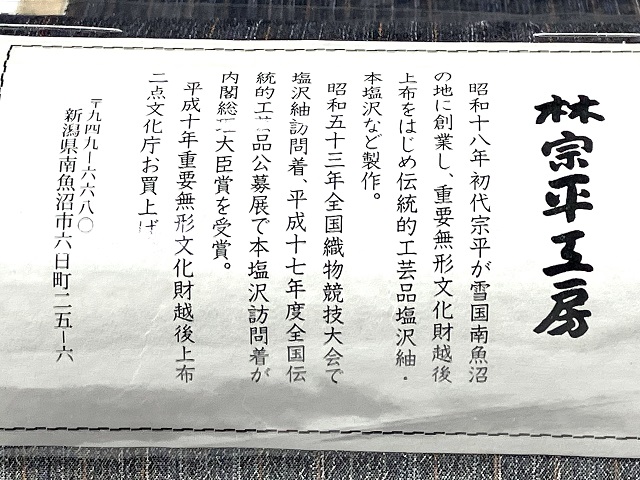 林宗平工房
昭和十八年初代宗平が雪国南魚沼
の地に創業し、重要無形文化財越後
上布をはじめ伝統的工芸品塩沢紬・
本塩沢など製作。
昭和五十三年全国織物競技大会で
塩沢紬訪問着、平成十七年度全国伝
統的工芸品公募展で本塩沢訪問着が
内閣総理大臣賞を受賞。
平成十年重要無形文化財越後上布
二点文化庁お買上げ
〒九四九ー六六八〇
新潟県南魚沼市六日町二五ー六